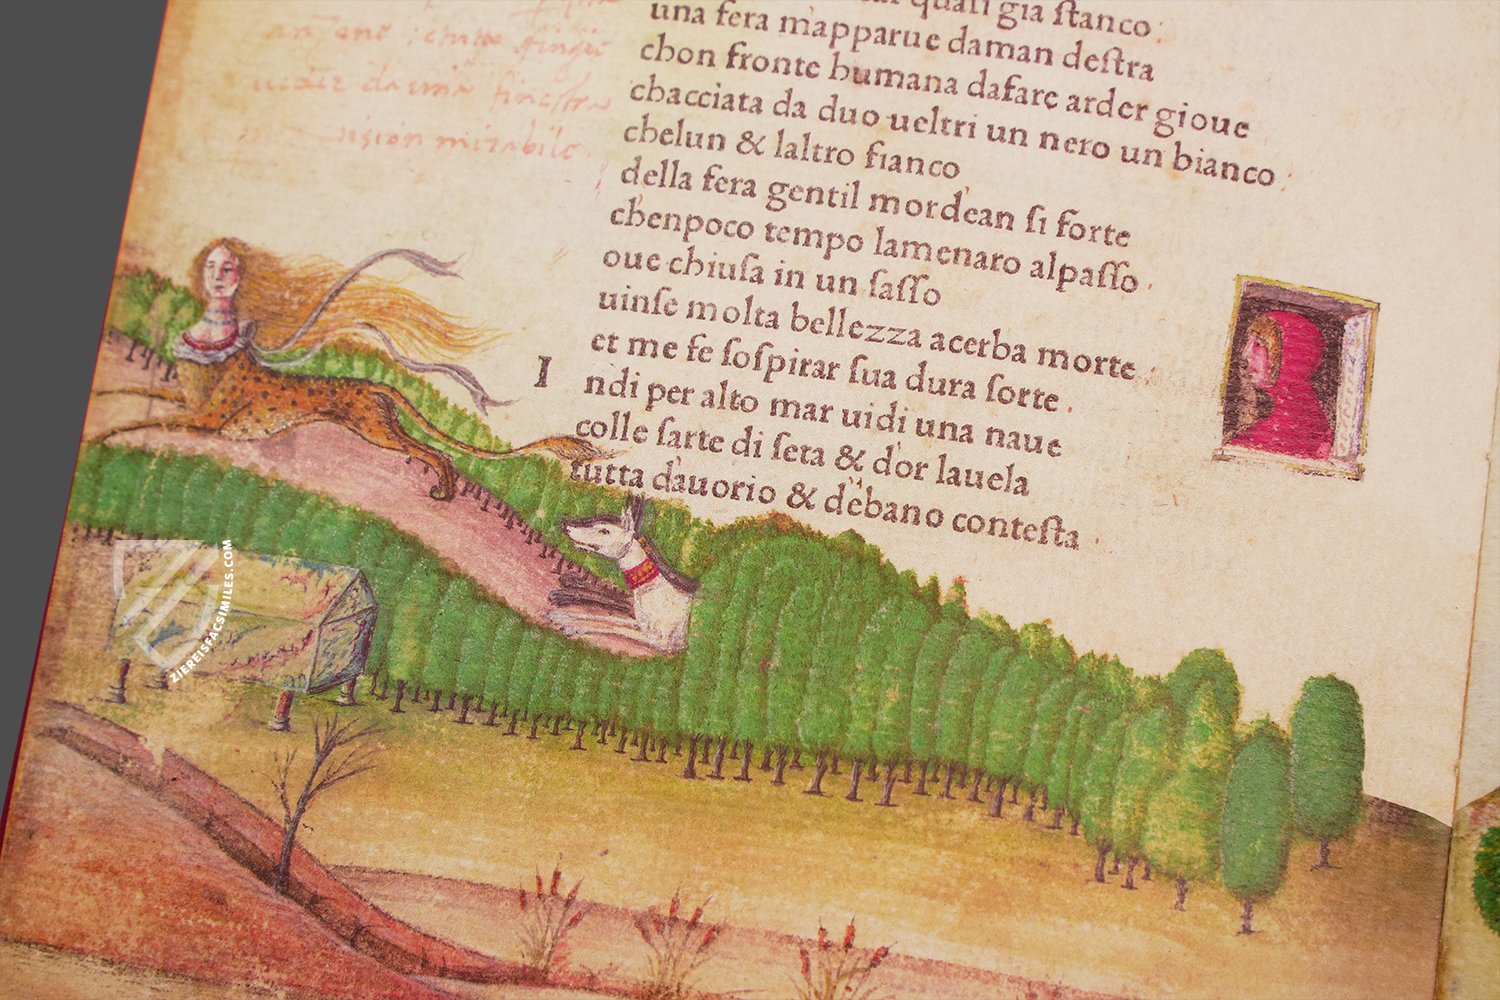 quali gia ſtanco
una fera mapparue daman deſtra
chon fronte humana dafare arder gioue
chacciata da duo ueltri un nero un bianco
chelun & laltro fianco
della fera gentil mordean ſi forte
chenpoco tempo lamenaro alpaſſo .
oue chiuſa in un ſaſſo
uinſe molta bellezza acerba morte .
et me fe ſoſpirar ſua dura ſorte .
I ndi per alto mar uidi una naue
colle ſarte di ſeta & dor lauela
tutta dauorio & debano conteſta
fingie
ueder finestra
uision mirabile
ZIEREISFACSIMILES.COM